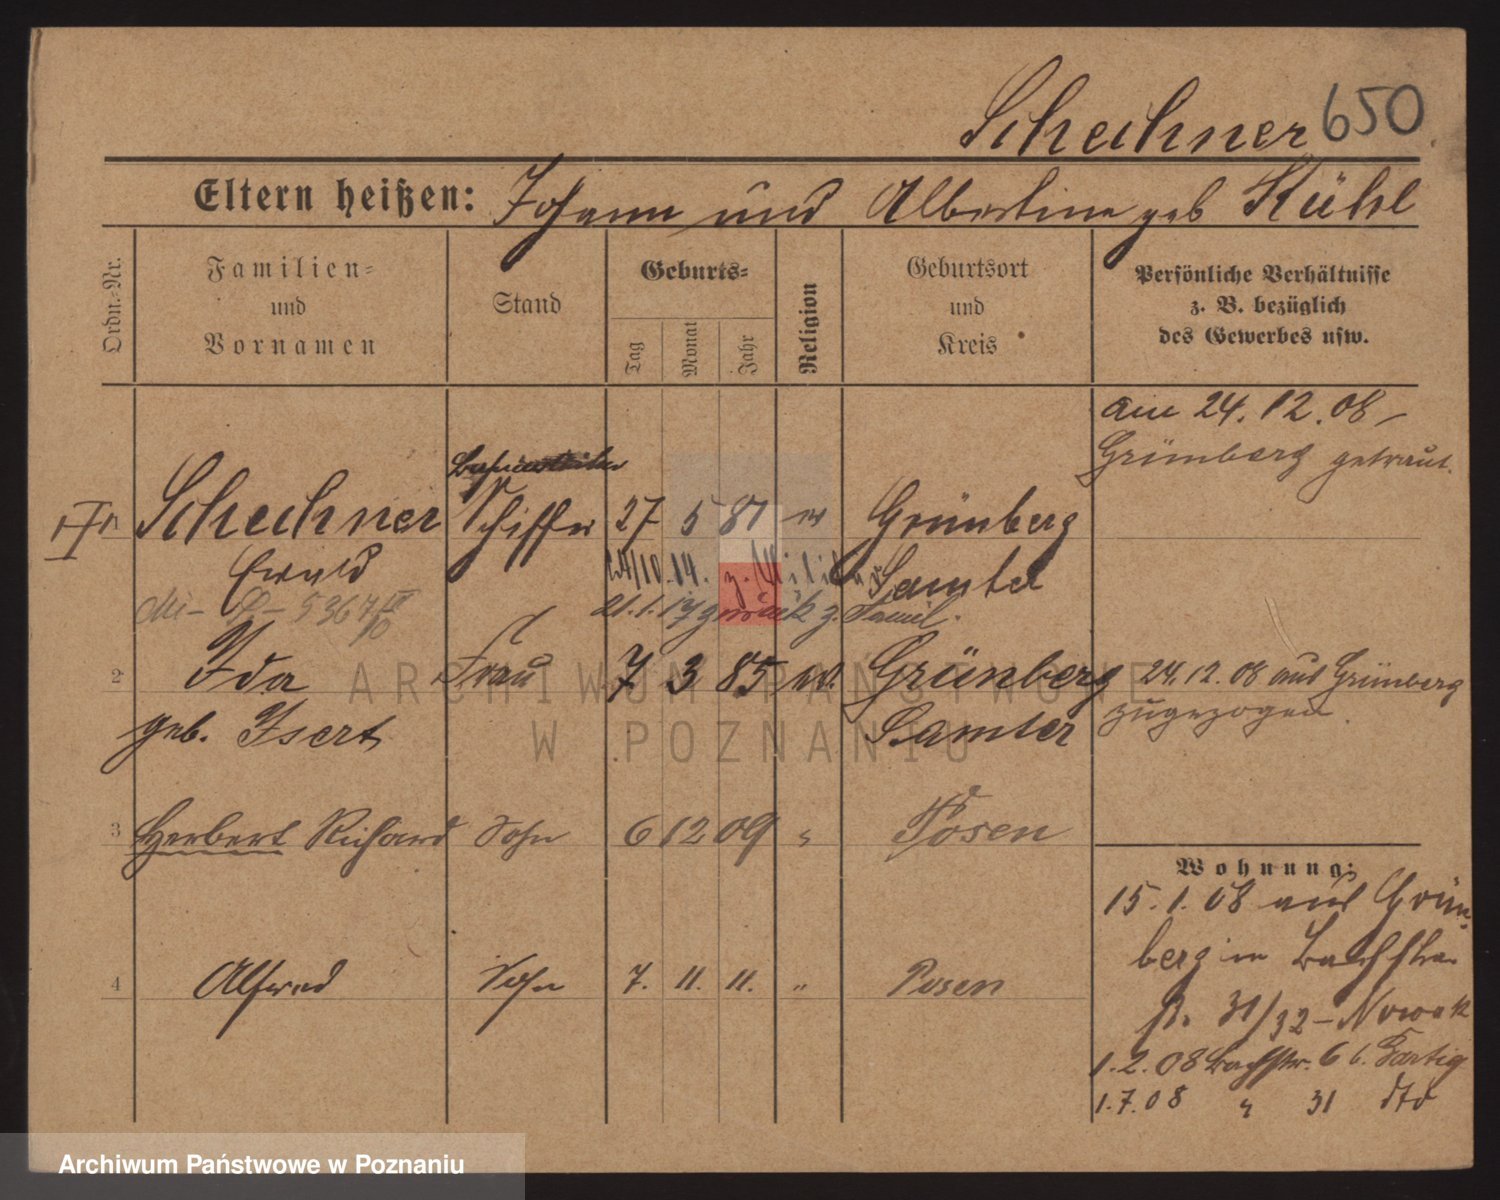 Schechner 650
Eltern heißen: Johann und Albertine geb Kühl
Ordn.-Nr.
Familien-
und
Vornamen
Stand
Geburts-
Tag
Monat
Jahr
Religion
Geburtsort
und
Kreis
Persönliche Verhältnisse
z. B. bezüglich
des Gewerbes usw.
am 24. 12. 08
Grünberg getraut.
Schechner Schiffer 27 5 81 Grünberg
Ewald 24/10. 14. z. Militär Samter
21.1.17 zurück z. Famil.
2 Ida Frau 7. 3 85 ev. Grünberg 24. 12. 08 aus Grünberg
geb. Isert Samter zugezogen.
3 Herbert Richard Sohn 6 12 09 " Posen
4 Alfred Sohn 7. 11. 11. " Posen
Wohnung:
15. 1. 08 aus Grün-
berg in Bachstra-
ße 31/32 - Nowak
1. 2. 08 Bachstr. 6 b. Hartig
1. 7. 08 " 31 dto
ARCHIWUM PAŃSTWOWE
W POZNANIU
Archiwum Państwowe w Poznaniu